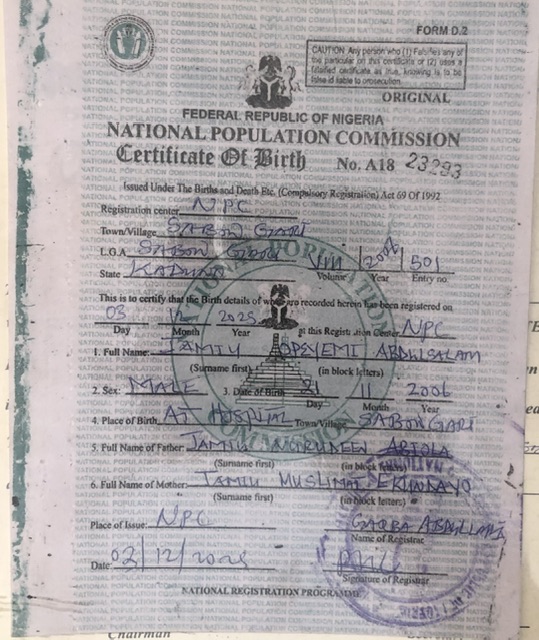 FORM D.2
CAUTION: Any person who (1) Falsifies any of
the particular on this certificate or (2) uses a
falsified certificate as true, knowing is to be
false is liable to prosecution.
ORIGINAL
FEDERAL REPUBLIC OF NIGERIA
NATIONAL POPULATION COMMISSION
Certificate Of Birth No. A18 23293
Issued Under The Births and Death Etc. (Compulsory Registration) Act 69 Of 1992
Registration center NPC
Town/Village SABON GARI
L.G.A SABON GARI VIII 2006 501
State KADUNA Volume Year Entry no.
This is to certify that the Birth details of were recorded herein has been registered on
03 12 2025 at this Registration Center NPC
Day Month Year
1. Full Name: JAMIU OPEYEMI ABDULSALAM
(Surname first) (in block letters)
2. Sex: MALE 3. Date of Birth 21 11 2006
Day Month Year
4. Place of Birth AT HOSPITAL Town/Village SABON GARI
5. Full Name of Father: JAMIU NURUDEEN ABIOLA
(Surname first) (in block letters)
6. Full Name of Mother: JAMIU MUSLIMAT
(Surname first) (in block letters)
Place of Issue: NPC GARBA ABDULLAHI
Name of Registrar
Date: 03/12/2025
Signature of Registrar
NATIONAL REGISTRATION PROGRAMME
Chairman